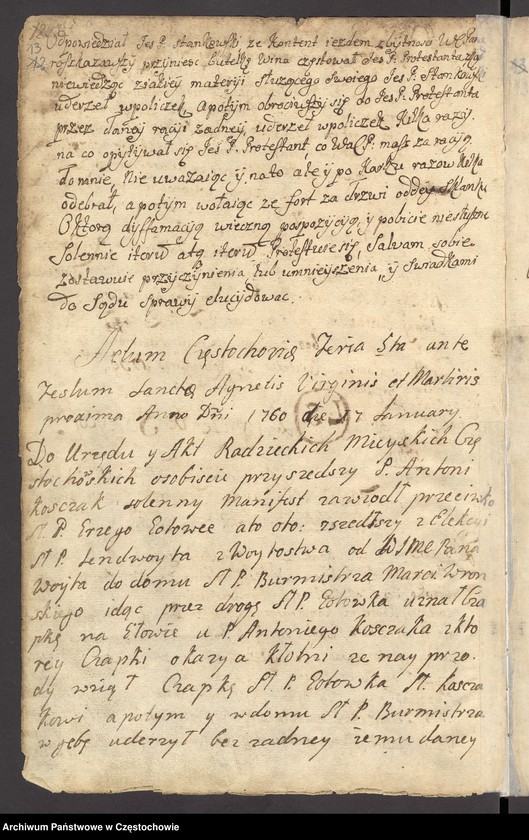 13
12
Odpowiedział Jeś P. Stankowski ze Kontent iezdem zbytnosci
rozkazawszy przynieść butelkę wina częstował Jeś P. Protestanta
niewiedząc zjakiey materyi służącego Swoiego Jeś P. Stankowski
uderzeł wpoliczek, apotym obrociwszy się do Jeś P. Protestanta
przez daney racyi zadney, uderzeł wpoliczek kilka razy.
na co opytywał się Jeś P. Protestant, co WaćP. masz za racyą
domnie, Nie uważaiąc y na to ale y po Karku razow kilka
odebrał, a potym wołaiąc ze fort za drzwi oddey
O ktorą dyffamacyią wieczną y pobicie niesłuszne
Solennie iterum atq iterum Protestuie się, Salvam sobie
zostawuie przyczynienia lub umnieyszenia, y Swiadkami
do Sądu Sprawy elucydować.
Actum Częstochoviæ Feria 5ta ante
Festum Sanctæ Agnetis Virginis et Martiris
proxima Anno Dñi 1760 die 17 January
Do Urzędu y Akt Radzieckich Mieyskich Czę
stochowskich osobiscie przyszedszy P. Antoni
Kosczak solenny Manifest zawiodł przeciwko
Sł. P. Erzego Gołowce a to oto: zszedłszy z Elekcyi
Sł P. Lendwoyta z Woytostwa od WJMC Pana
Woyta do domu Sł P. Burmistrza Marci Wron
skiego idąc przez drogę Sł P. Gołowka uznał Cza
pkę na Głowie u P. Antoniego Kosczaka z kto
rey Czapki okazya kłotni ze nayprzo.
dy wziął Czapkę Sł. P. Gołowka Sł. Koscza
kowi a potym y w domu Sł P. Burmistrza
w gębę uderzył bez zadney iemu daney
Archiwum Państwowe w Częstochowie